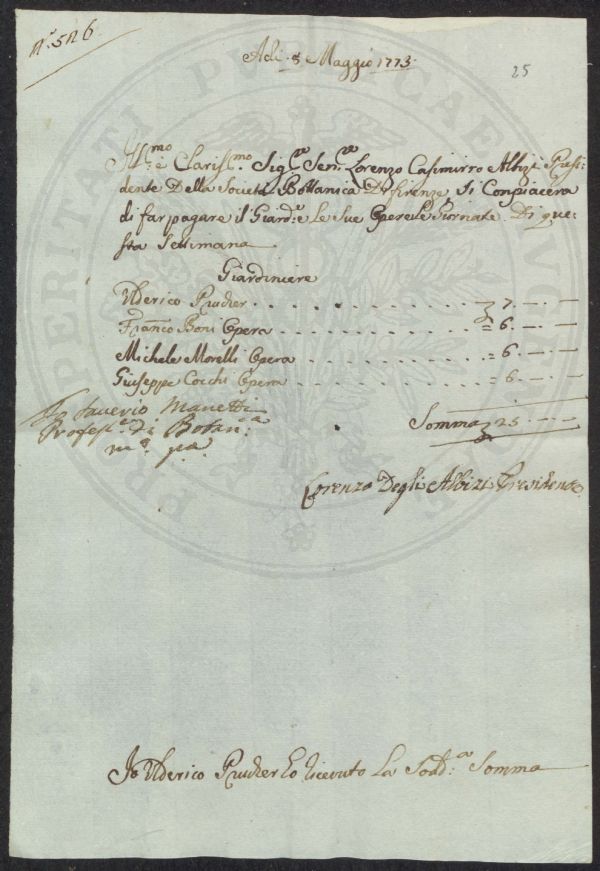 N.º 526
Adi 8 Maggio 1773
25
Ill.mo e Clariss.mo Sig.re Sen.re Lorenzo Casimirro Albizi Presi:
dente Della Società Bottanica Di firenze si Compiacera
di far pagare il Giard.e e Le Sue Opere le Giornate Di que:
sta Settimana
Giardiniere
Ulderico Prucker . . . . . . . . . . 7 . — . —
Franco Boni Opera . . . . . . . . . = 6 . — . —
Michele Morelli Opera . . . . . . . . = 6 . — . —
Giuseppe Cocchi Opera . . . . . . . . = 6 . — . —
Io Saverio Manetti
Profess.e di Botan:ca
m.o p.a
Somma 25 . — . —
Lorenzo Degli Albizi Presidente
Io Ulderico Prucker ho ricevuto La Sodd.a Somma
PERITI PUBLICAE